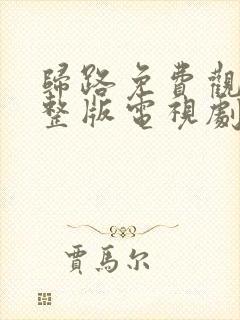 歸路免費觀
整版電視劇
賈馬尔